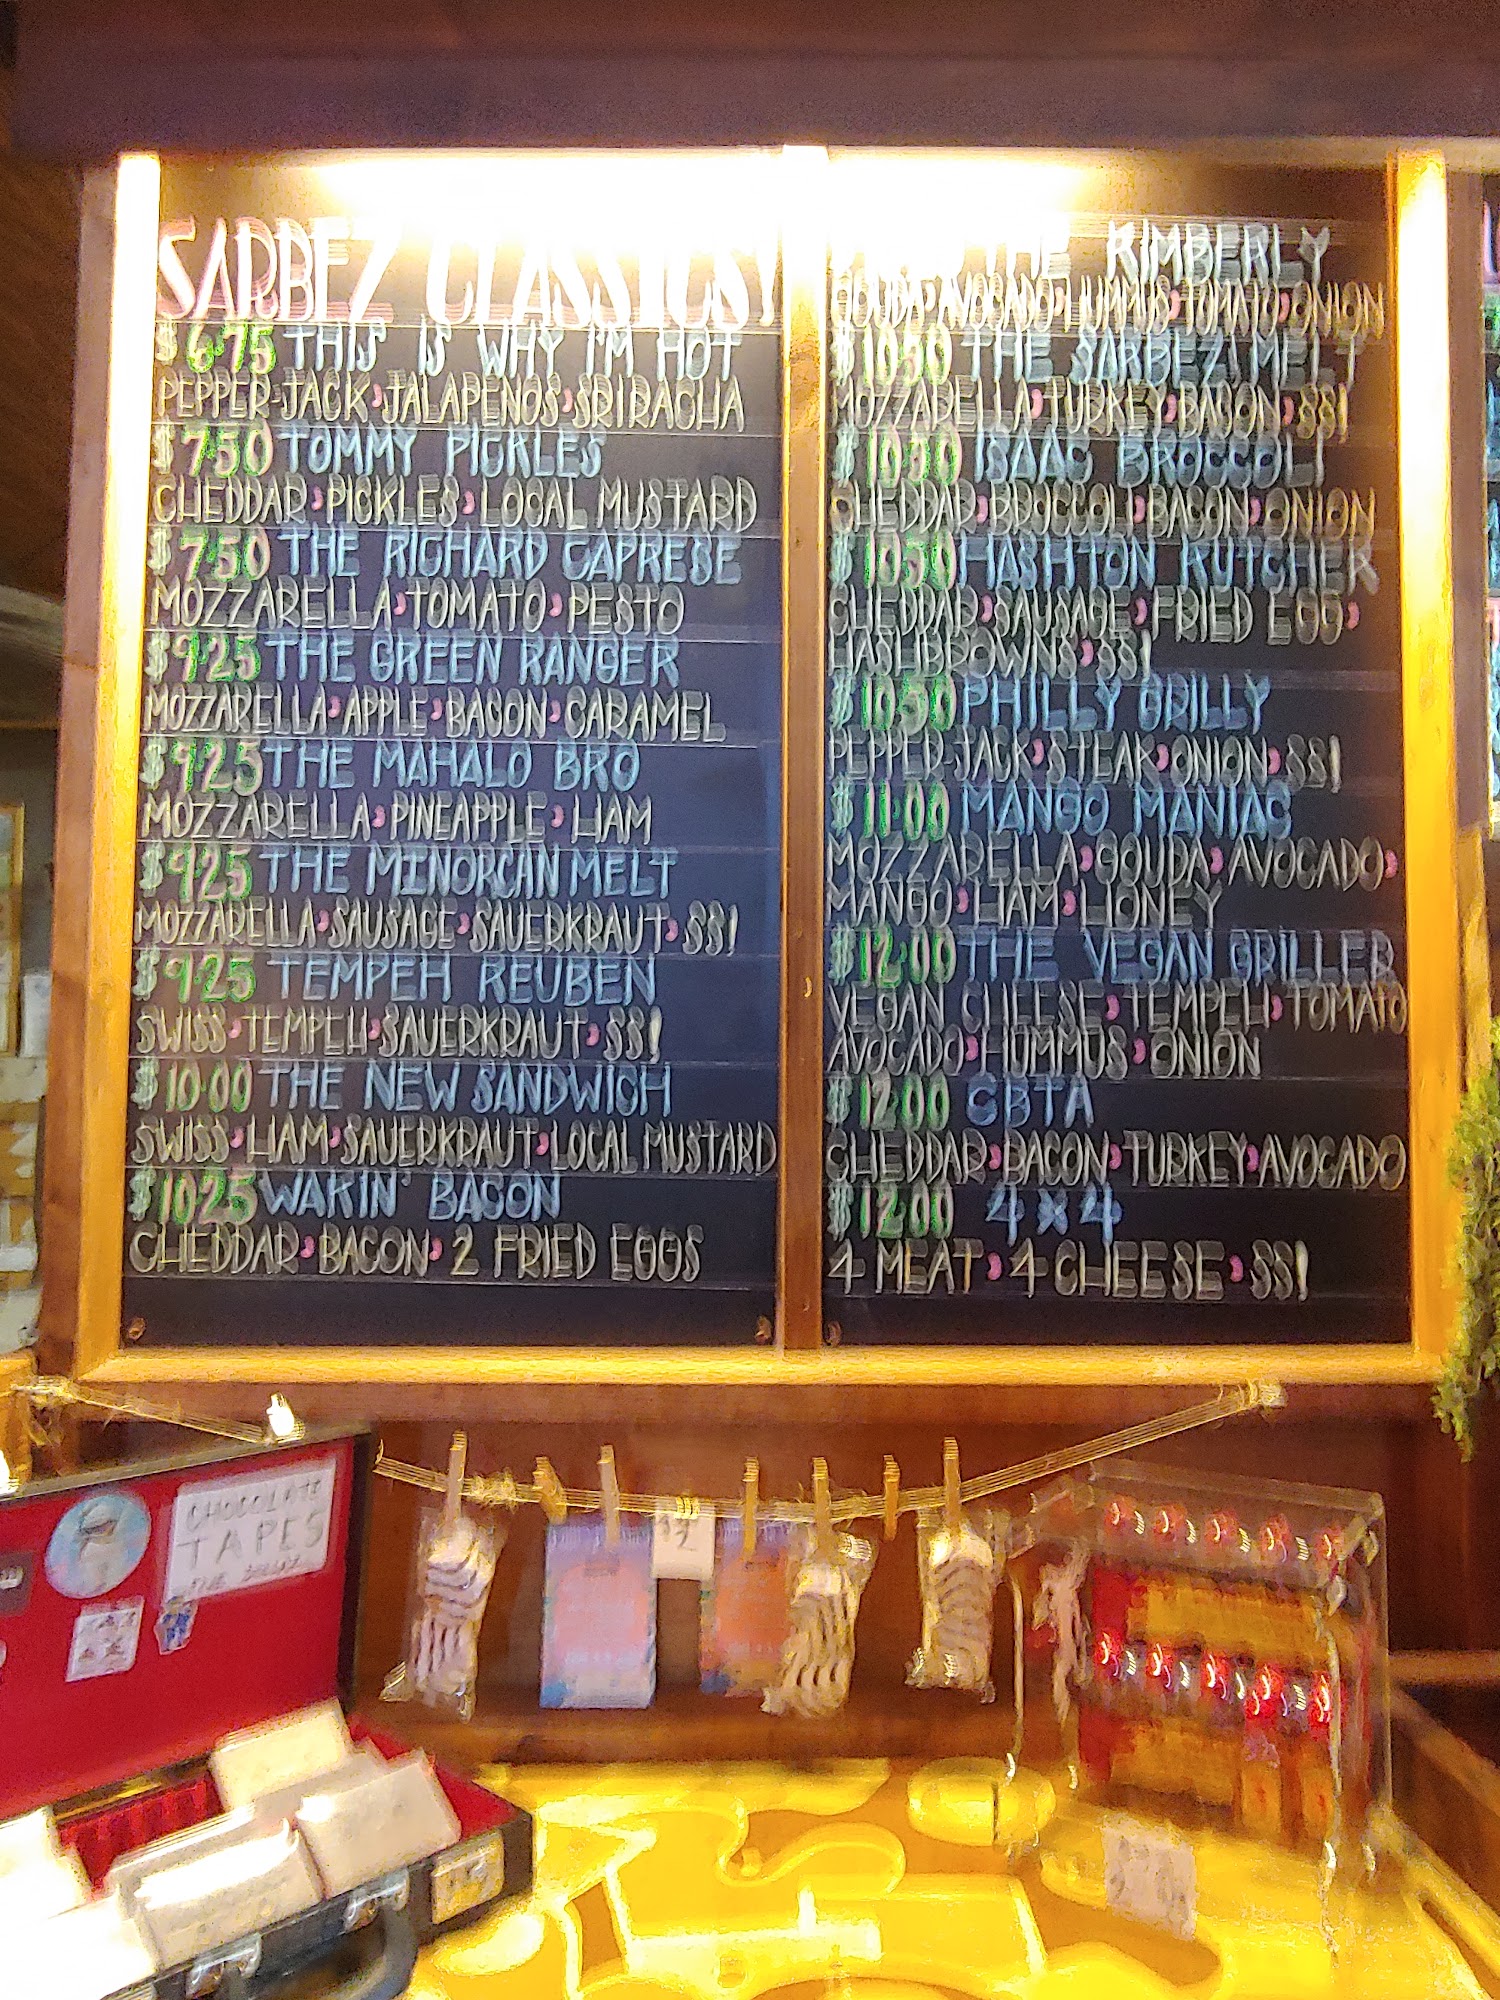 SARBEZ CLASSICS!
$6.75 THIS IS WHY I'M HOT
PEPPER-JACK JALAPENOS SRIRACHA
$7.50 TOMMY PICKLES
CHEDDAR PICKLES LOCAL MUSTARD
$7.50 THE RICHARD CAPRESE
MOZZARELLA TOMATO PESTO
$9.25 THE GREEN RANGER
MOZZARELLA APPLE BACON CARAMEL
$9.25 THE MAHALO BRO
MOZZARELLA PINEAPPLE HAM
$9.25 THE MINORCAN MELT
MOZZARELLA SAUSAGE SAUERKRAUT SS!
$9.25 TEMPEH REUBEN
SWISS TEMPEH SAUERKRAUT SS!
$10.00 THE NEW SANDWICH
SWISS HAM SAUERKRAUT LOCAL MUSTARD
$10.25 WAKIN' BACON
CHEDDAR BACON 2 FRIED EGGS
THE KIMBERLY
GOUDA AVOCADO HUMMUS TOMATO ONION
$10.50 THE SARBEZ! MELT
MOZZARELLA TURKEY BACON SS!
$10.50 ISAAC BROCCOLI
CHEDDAR BROCCOLI BACON ONION
$10.50 HASHTON KUTCHER
CHEDDAR SAUSAGE FRIED EGG
HASHBROWNS SS!
$10.50 PHILLY GRILLY
PEPPER-JACK STEAK ONION SS!
$11.00 MANGO MANIAC
MOZZARELLA GOUDA AVOCADO
MANGO HAM HONEY
$12.00 THE VEGAN GRILLER
VEGAN CHEESE TEMPEH TOMATO
AVOCADO HUMMUS ONION
$12.00 CBTA
CHEDDAR BACON TURKEY AVOCADO
$12.00 4x4
4 MEAT 4 CHEESE SS!
CHOCOLATE
TAPES
$2